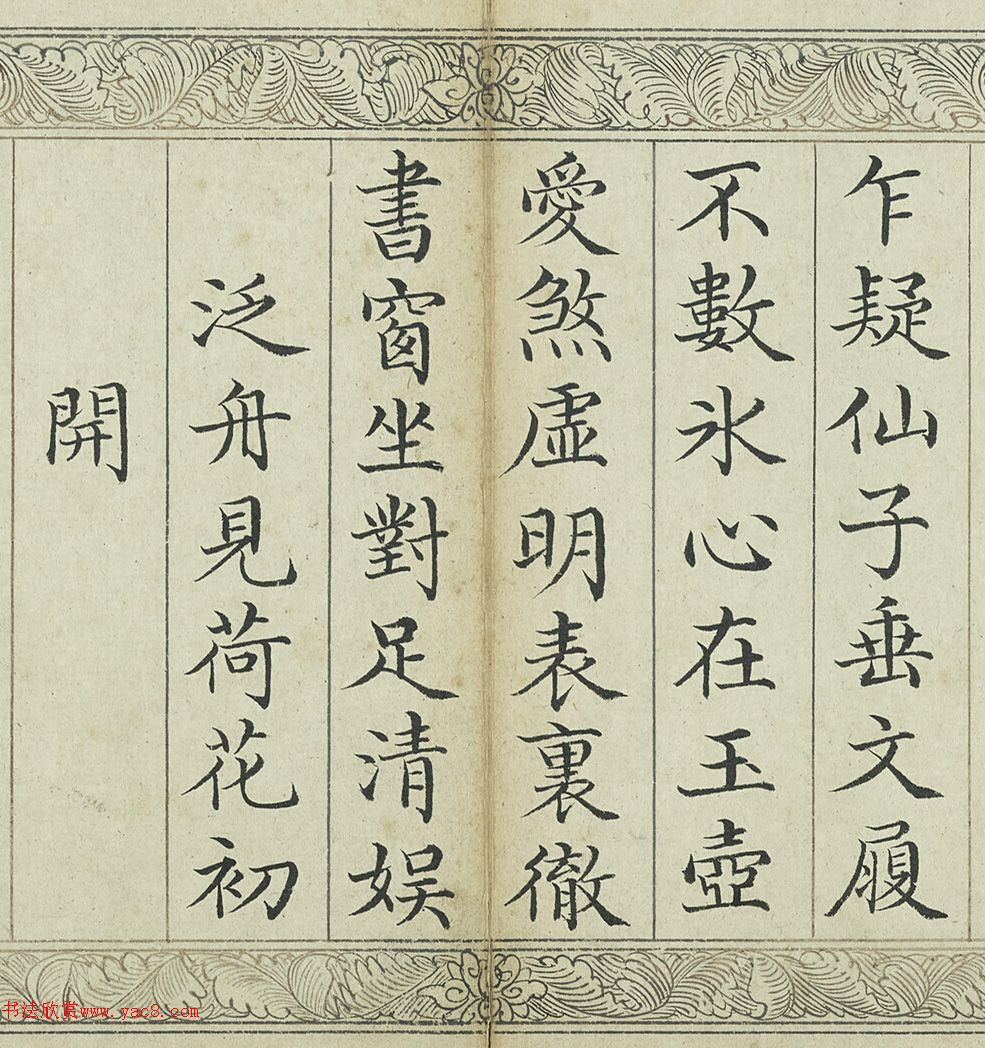 乍疑仙子垂文履
不數氷心在玉壺
愛煞虛明表裏徹
書窗坐對足清娱
泛舟見荷花初
開
书法欣赏www.yac8.com